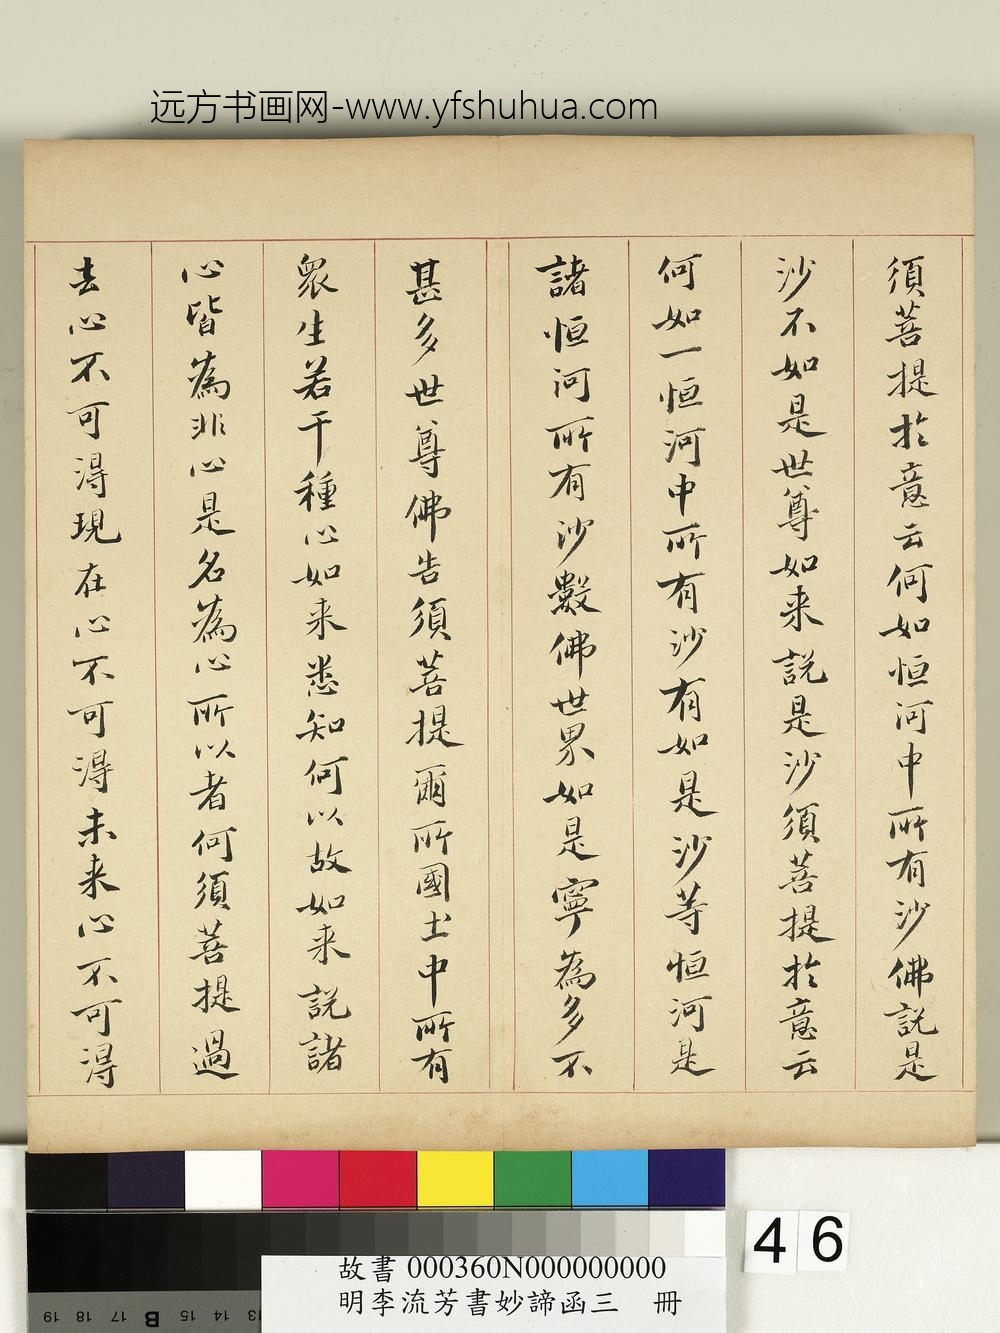 远方书画网-www.yfshuhua.com
須菩提於意云何如恒河中所有沙佛說是
沙不如是世尊如来說是沙須菩提於意云
何如一恒河中所有沙有如是沙等恒河是
諸恒河所有沙數佛世界如是寧為多不
甚多世尊佛告須菩提爾所國土中所有
衆生若干種心如来悉知何以故如来說諸
心皆為非心是名為心所以者何須菩提過
去心不可得現在心不可得未来心不可得
46
故書 000360N000000000
明李流芳書妙諦函三 冊
19 18 17 B 15 14 13